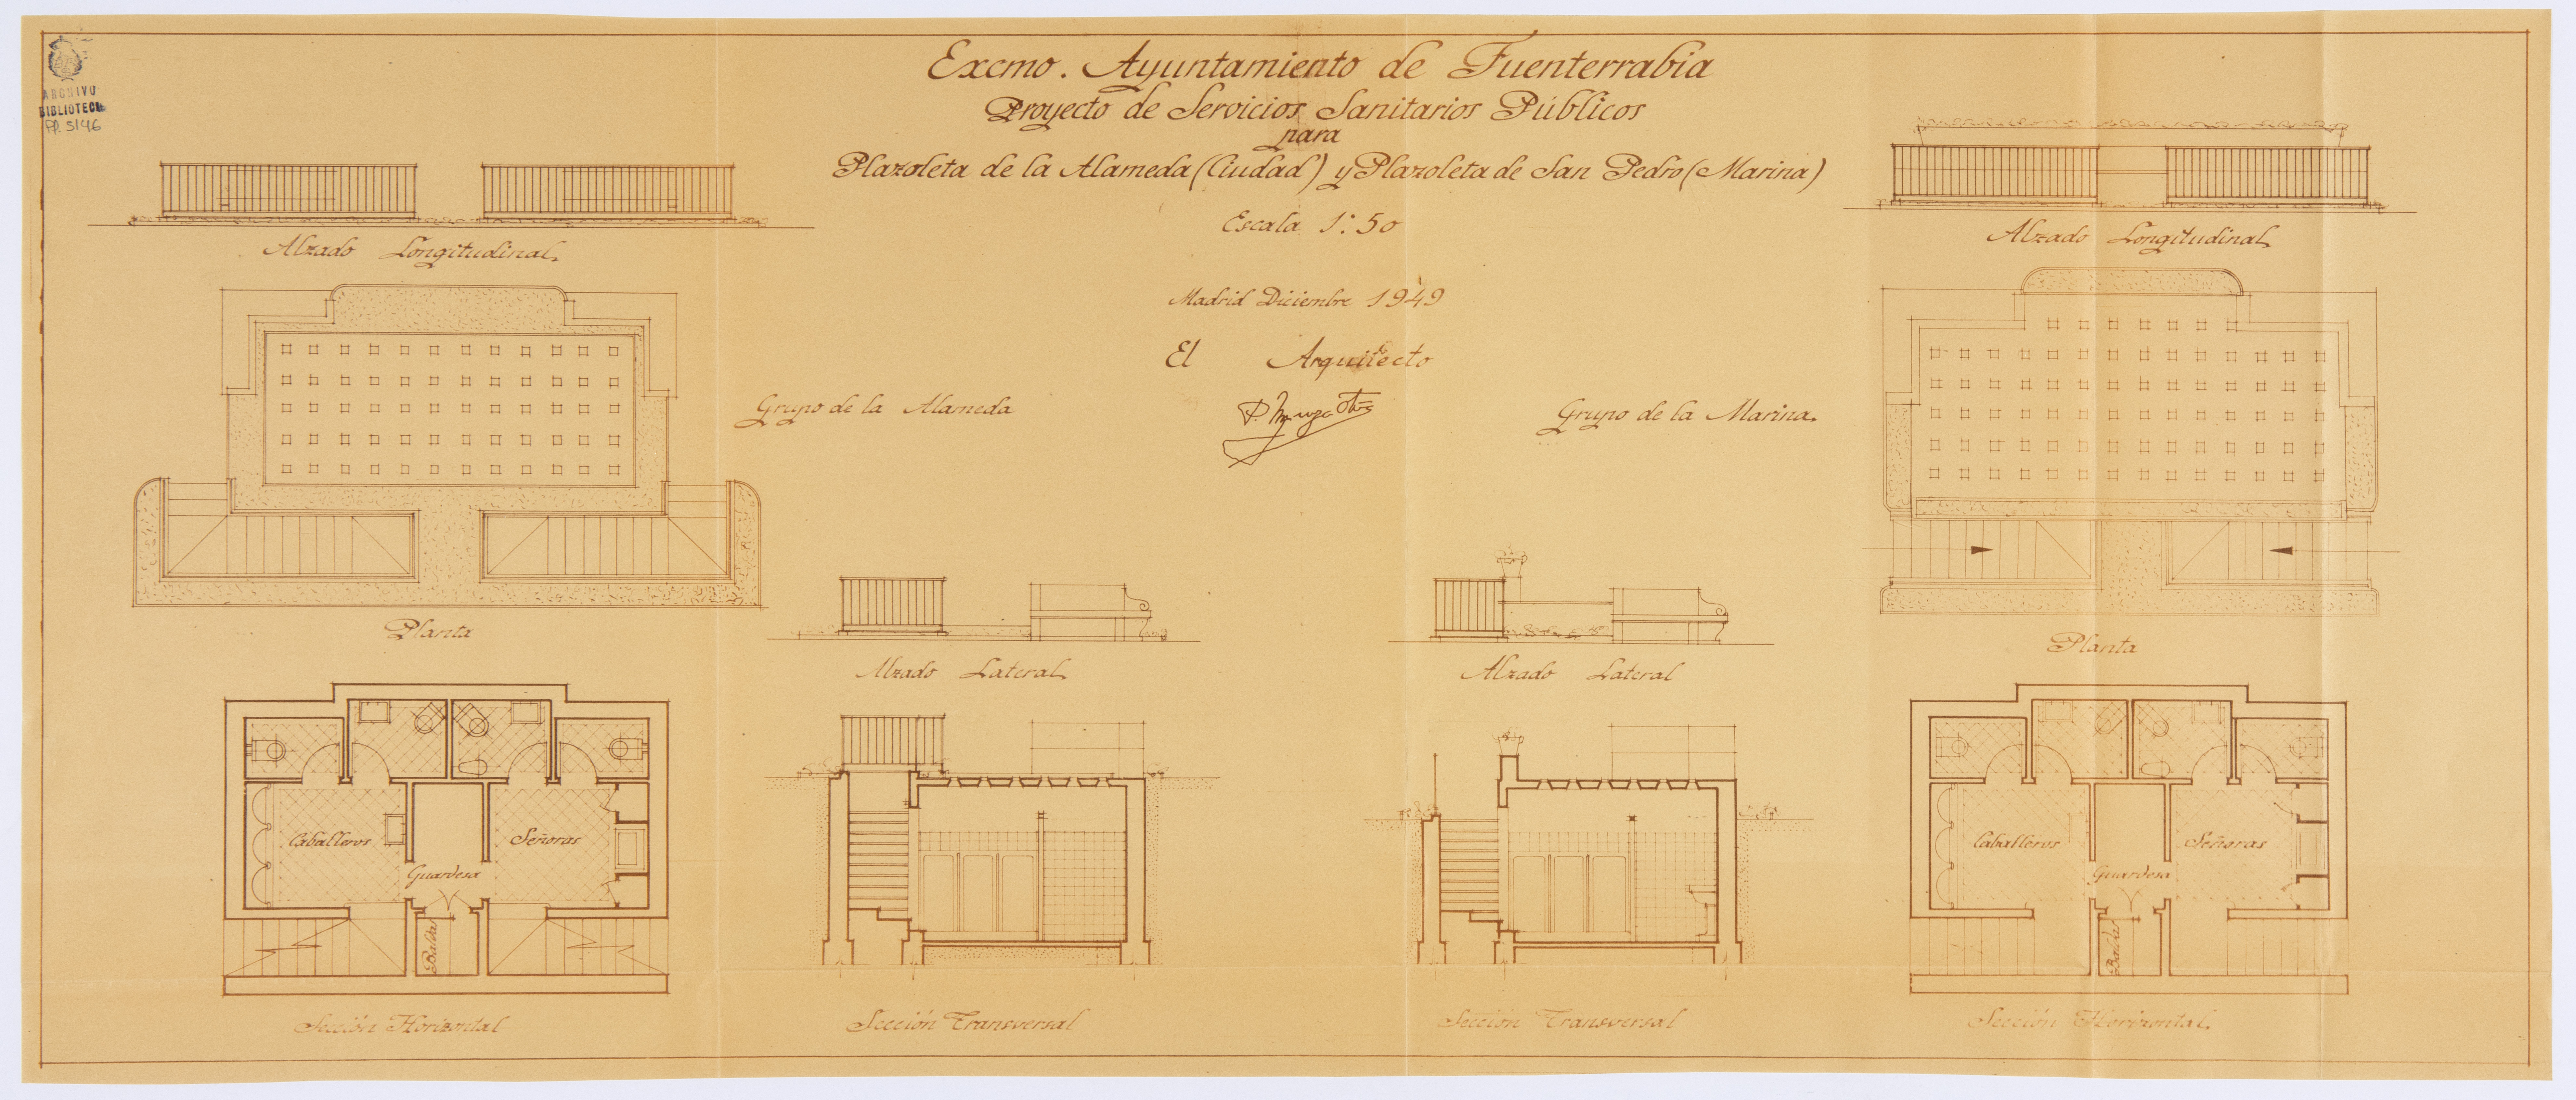 ARCHIVO
BIBLIOTECA
FP. 5146
Excmo. Ayuntamiento de Fuenterrabia
Proyecto de Servicios Sanitarios Públicos
para
Plazoleta de la Alameda (Ciudad) y Plazoleta de San Pedro (Marina)
Escala 1:50
Madrid Diciembre 1949
El Arquitecto
Alzado Longitudinal
Alzado Longitudinal
Grupo de la Alameda
Grupo de la Marina.
Planta
Alzado Lateral
Alzado Lateral
Planta
Caballeros
Señoras
Guardesa
Baldes
Caballeros
Señoras
Guardesa
Baldes
Sección Horizontal
Sección Transversal
Sección Transversal
Sección Horizontal.